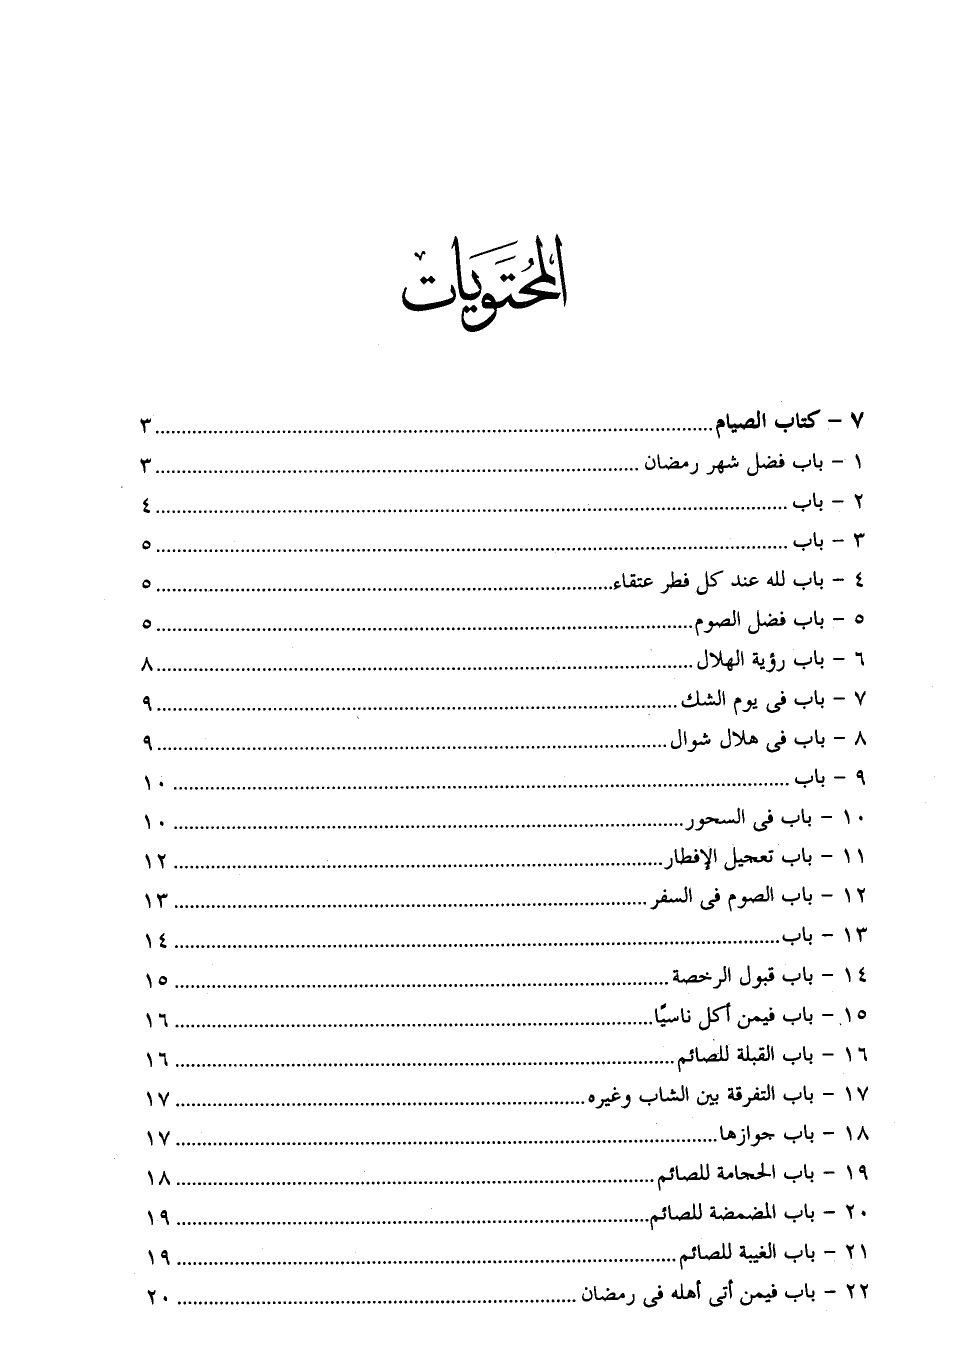 المحتويات
٧ - كتاب الصيام ........ ٣
١ - باب فضل شهر رمضان ........ ٣
٢ - باب ........ ٤
٣ - باب ........ ٥
٤ - باب لله عند كل فطر عتقاء ........ ٥
٥ - باب فضل الصوم ........ ٥
٦ - باب رؤية الهلال ........ ٨
٧ - باب فى يوم الشك ........ ٩
٨ - باب فى هلال شوال ........ ٩
٩ - باب ........ ١٠
١٠ - باب فى السحور ........ ١٠
١١ - باب تعجيل الإفطار ........ ١٢
١٢ - باب الصوم فى السفر ........ ١٣
١٣ - باب ........ ١٤
١٤ - باب قبول الرخصة ........ ١٥
١٥ - باب فيمن أكل ناسيًا ........ ١٦
١٦ - باب القبلة للصائم ........ ١٦
١٧ - باب التفرقة بين الشاب وغيره ........ ١٧
١٨ - باب جوازها ........ ١٧
١٩ - باب الحجامة للصائم ........ ١٨
٢٠ - باب المضمضة للصائم ........ ١٩
٢١ - باب الغيبة للصائم ........ ١٩
٢٢ - باب فيمن أتى أهله فى رمضان ........ ٢٠